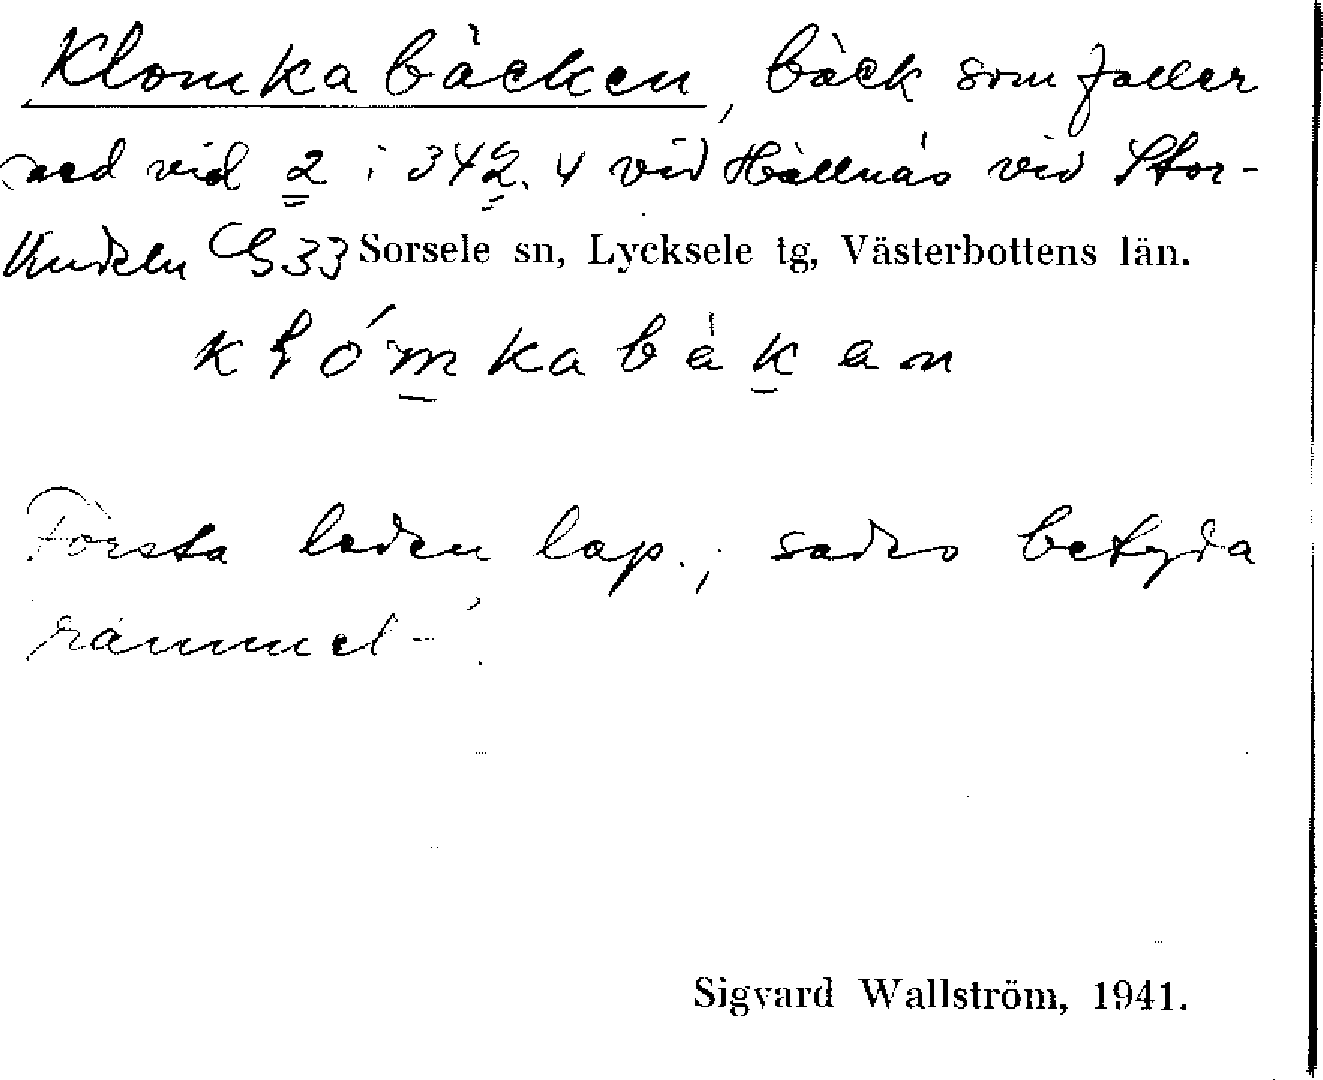 Klomkabäcken, bäck som faller
ned vid 2 i 342. 4 vid Hällnäs vid Stor-
Vindeln G 33 Sorsele sn, Lycksele tg, Västerbottens län.
klómkabäkan
Första leden lap.; sades betyda
'rämmel-'.
Sigvard Wallström, 1941.